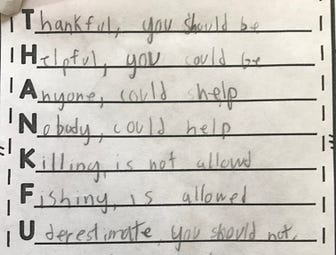 Thankful, you should be
Helpful, you could be
Anyone, could help
Nobody, could help
Killing, is not allowd
Fishing, is allowed
Uderestimate, you should not.